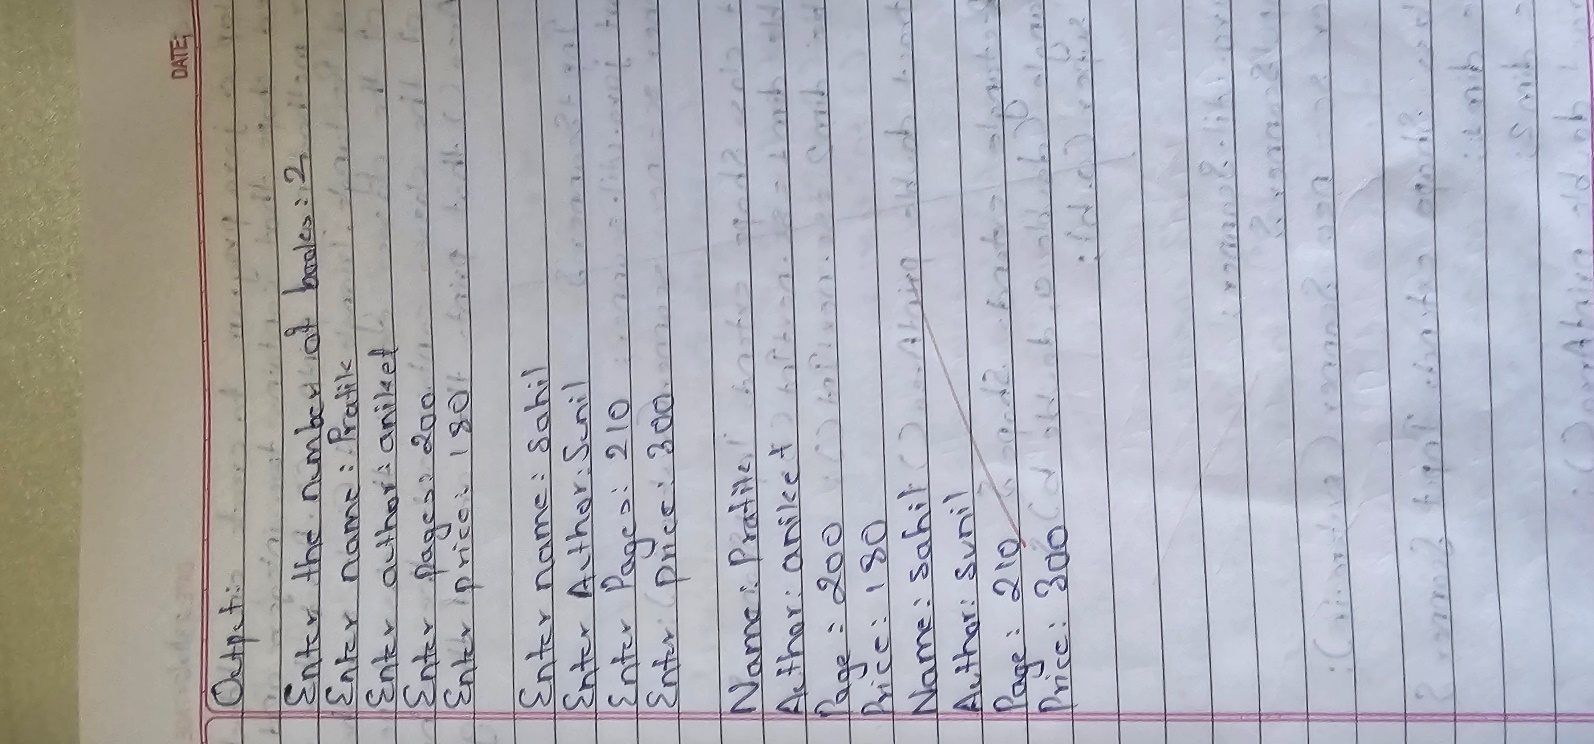 DATE:
Output:
Enter the number of books: 2
Enter name: Pratik
Enter author: aniket
Enter Pages: 200
Enter price: 180
Enter name: Sahil
Enter Author: Sunil
Enter Pages: 210
Enter price: 300
Name: Pratik
Author: aniket
Page: 200
Price: 180
Name: Sahil
Author: Sunil
Page: 210
Price: 300